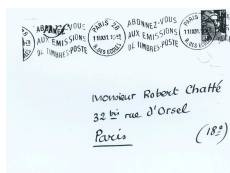 ABONNEZ-VOUS
AUX EMISSIONS
DE TIMBRES-POSTE
PARIS 28
R. DES ROSES
ABONNEZ-VOUS
AUX EMISSIONS
DE TIMBRES-POSTE
PARIS
R. DES ROSES
Monsieur Robert Chatté
32 bis rue d'Orsel
Paris
(18e)